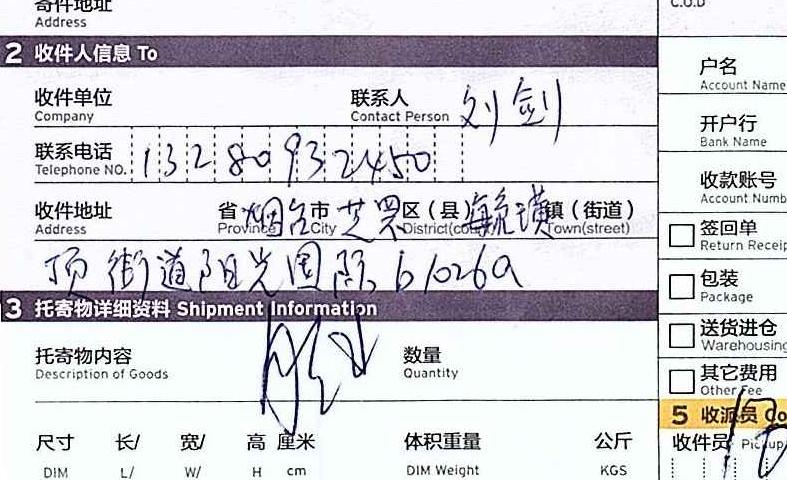 寄件地址
Address
C.O.D
2 收件人信息 To
收件单位
Company
联系人 刘剑
Contact Person
联系电话 13280932450
Telephone NO.
收件地址 省 烟台 市 芝罘 区（县） 镇（街道）
Address Province City District(county) Town(street)
顶 街道阳光国际 b1026a
3 托寄物详细资料 Shipment Information
托寄物内容
Description of Goods
数量
Quantity
尺寸 长/ 宽/ 高 厘米 体积重量 公斤
DIM L/ W/ H cm DIM Weight KGS
户名
Account Name
开户行
Bank Name
收款账号
Account Numb
签回单
Return Receip
包装
Package
送货进仓
Warehousing
其它费用
Other Fee
5 收派员 Co
收件员 Pickup